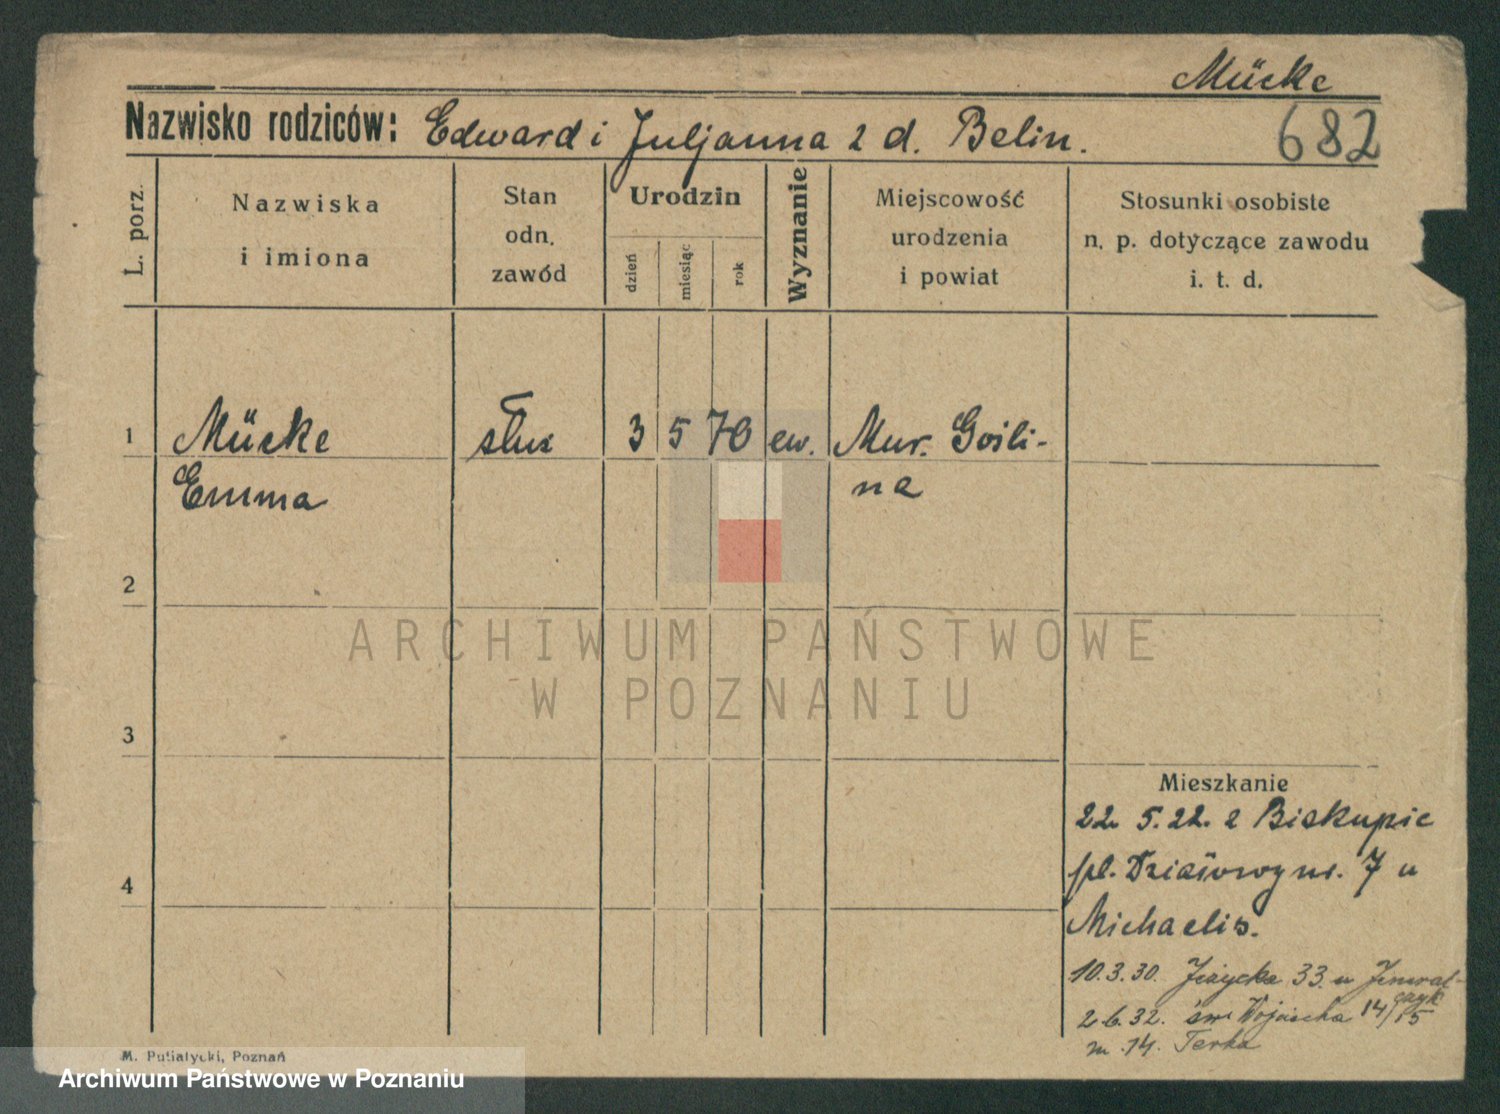 Mücke
Nazwisko rodziców: Edward i Juljanna z d. Belin.
682
L. porz.
Nazwiska
i imiona
Stan
odn.
zawód
Urodzin
dzień
miesiąc
rok
Wyznanie
Miejscowość
urodzenia
i powiat
Stosunki osobiste
n. p. dotyczące zawodu
i. t. d.
1 Mücke służ 3 5 70 ew. Mur. Gośli-
Emma na
2
3
4
Mieszkanie
22 5. 22. z Biskupic
pl. Działowy nr. 7 u
Michaelis.
10.3.30. Jeżycka 33 u
2.6.32. św. Wojciecha 14/15
m. 14. Terka
ARCHIWUM PAŃSTWOWE
W POZNANIU
M. Putiatycki, Poznań
Archiwum Państwowe w Poznaniu